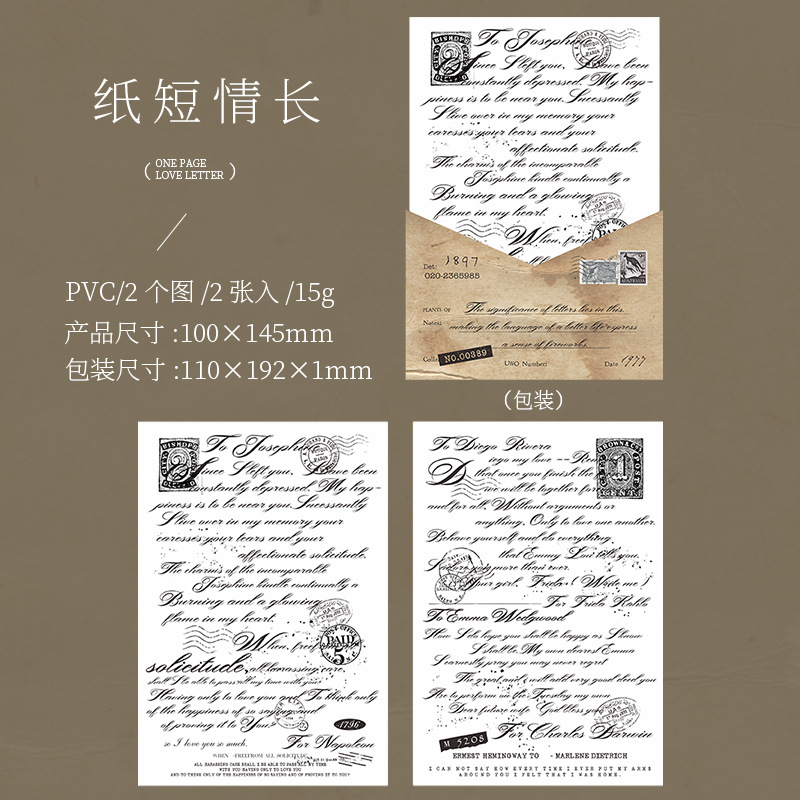 纸短情长
( ONE PAGE
LOVE LETTER )
PVC/2 个图 /2 张入 /15g
产品尺寸 :100×145mm
包装尺寸 :110×192×1mm
BISHOP
To Josephine
Since I left you, I have been
constantly depressed. My hap-
piness is to be near you. Sucessantly
I live over in my memory your
caresses your tears and your
affectionate solicitude.
The charms of the incomparable
Josephine kindle continually a
Burning and a glowing
flame in my heart.
When, free
PAID
Det: 1897
020-2365985
AUSTRALIA
PLANTS OF The significance of letters lies in this.
Notes: making the language of a better life express
a sense of fireworks.
NO.00389
UWO Number:
Date 1977
(包装)
BISHOP
To Josephine
Since I left you, I have been
constantly depressed. My hap-
piness is to be near you. Sucessantly
I live over in my memory your
caresses your tears and your
affectionate solicitude.
The charms of the incomparable
Josephine kindle continually a
Burning and a glowing
flame in my heart.
When, free
PAID
5
solicitude, all harassing care,
shall I be able to pass all my time with you?
Having only to love you and To think only
of the happiness of so saying and
of proving it to You?
1796
so I love you so much.
For Napoleon
WHEN FREEFROM ALL SOLICITUDE,
ALL HARASSING CARE SHALL I BE ABLE TO PASS ALL MY TIME
WITH YOU HAVING ONLY TO LOVE YOU
AND TO THINK ONLY OF THE HAPPINESS OF SO SAYING AND OF PROVING IT TO YOU?
To Diego Rivera
Diego my love ---
that once you finish the
we will be together for
and for all, Without arguments or
anything, Only to love one another.
Behave yourself and do everything
that Emmy Lou tells you.
I adore you more than ever.
Your girl, Frida ( Write me )
For Frida Kahlo
1
To Emma Wedgwood
How I do hope you shall be happy as I know
I shall be. My own dearest Emma
I earnestly pray you may never regret
The great and i will add very good deed you
Are to perform on the Tuesday my own
Dear future wife God bless you
For Charles Darwin
M 5208
ERNEST HEMINGWAY TO - MARLENE DIETRICH
I CAN NOT SAY HOW EVERY TIME I EVER PUT MY ARMS
AROUND YOU I FELT THAT I WAS HOME.